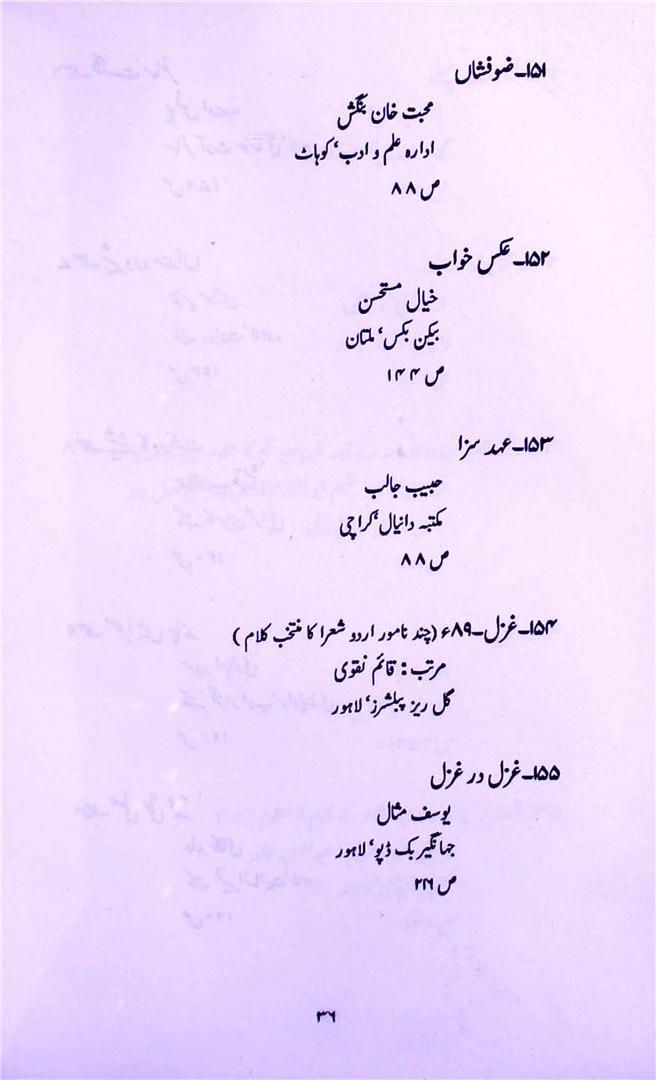 ۱۵۱۔ ضوفشاں
محبت خان بنگش
ادارہ علم و ادب، کوہاٹ
ص ۸۸
۱۵۲۔ عکس خواب
خیال مستحسن
بیکن بکس، ملتان
ص ۱۴۴
۱۵۳۔ عہد سزا
حبیب جالب
مکتبہ دانیال، کراچی
ص ۸۸
۱۵۴۔ غزل۔۸۹ء (چند نامور اردو شعرا کا منتخب کلام)
مرتب: قائم نقوی
گل ریز پبلشرز، لاہور
۱۵۵۔ غزل در غزل
یوسف مثال
جہانگیر بک ڈپو، لاہور
ص ۲۲۶
۳۶